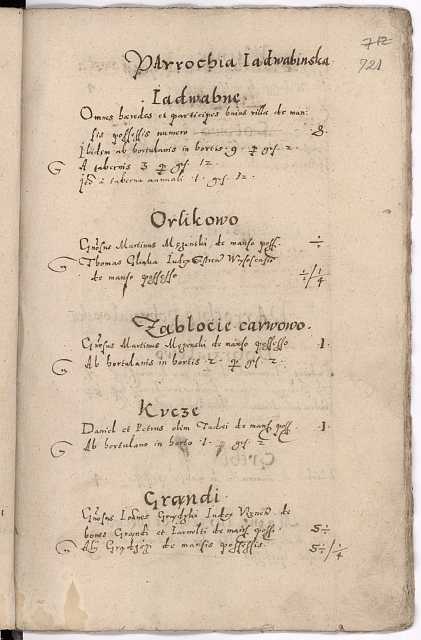 712
721
Parrochia Iadwabinska
Iadwabne
Omnes hæredes et participes huius villæ de man:
sis possessis numero 8
Ibidem ab hortulanis in hortis 9 per gr. 2.
A tabernis 3 per gr. 12.
Itē a taberna annuali 1. gr. 12.
Orlikowo
Gnosus Martinus de manso poss.
Thomas Glinka Iudex
de manso possesso 1/4
Zablocie carwowo.
Gnosus Martinus de manso possesso 1.
Ab hortulanis in hortis 2. per gr. 2.
Kucze
Daniel et Petrus olim de manso poss. 1.
Ab hortulano in horto 1. gr. 2
Grandi
Gnosus Ioānes Iudex de
bonis Grandi et de mansis poss. 5
de mansis possessis 5 1/4